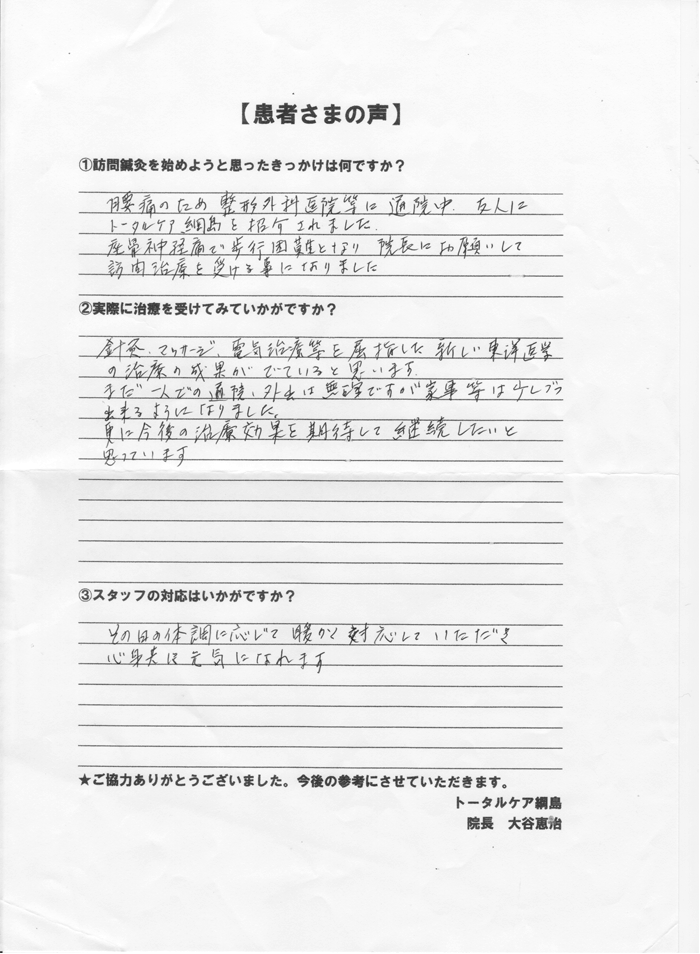 【患者さまの声】
①訪問鍼灸を始めようと思ったきっかけは何ですか?
腰痛のため整形外科医院等に通院中、友人に
トータルケア綱島を紹介されました。
座骨神経痛で歩行困難となり 院長にお願いして
訪問治療を受ける事になりました
②実際に治療を受けてみていかがですか?
針灸、マッサージ、電気治療等を屈指した新しい東洋医学
の治療の成果がでていると思います。
まだ一人での通院、外出は無理ですが家事等は少しづつ
出来るようになりました。
更に今後の治療効果を期待して継続したいと
思っています
③スタッフの対応はいかがですか?
その日の体調に応じて暖かく対応していただき
心身共に元気になれます
★ご協力ありがとうございました。今後の参考にさせていただきます。
トータルケア綱島
院長 大谷恵治